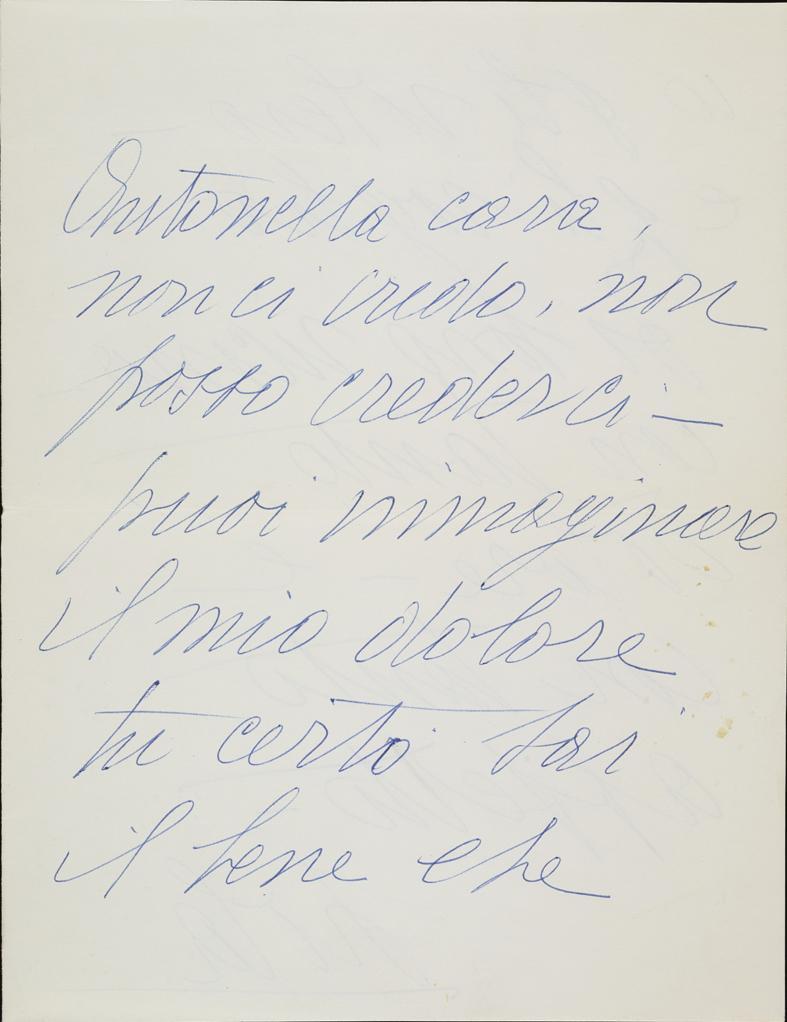 Antonella cara,
non ci credo, non
posso crederci —
puoi immaginare
il mio dolore
tu certo sai
il bene che